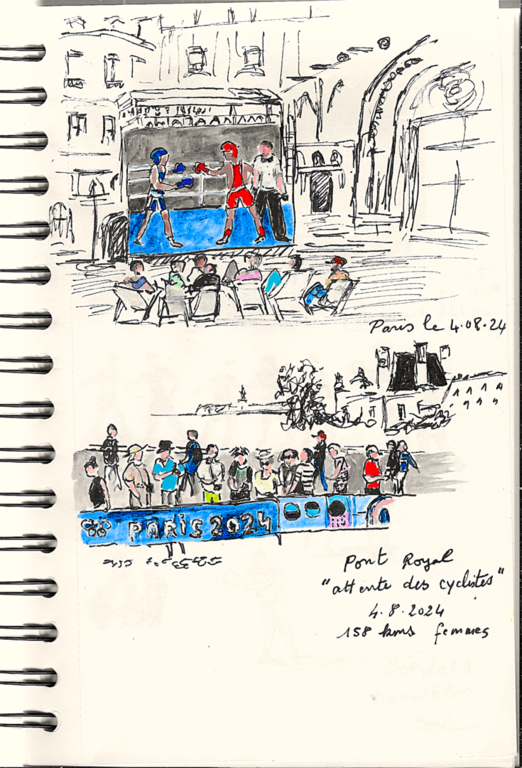 Paris le 4.08.24
PARIS 2024
Pont Royal
"attente des cyclistes"
4.8.2024
158 kms femmes